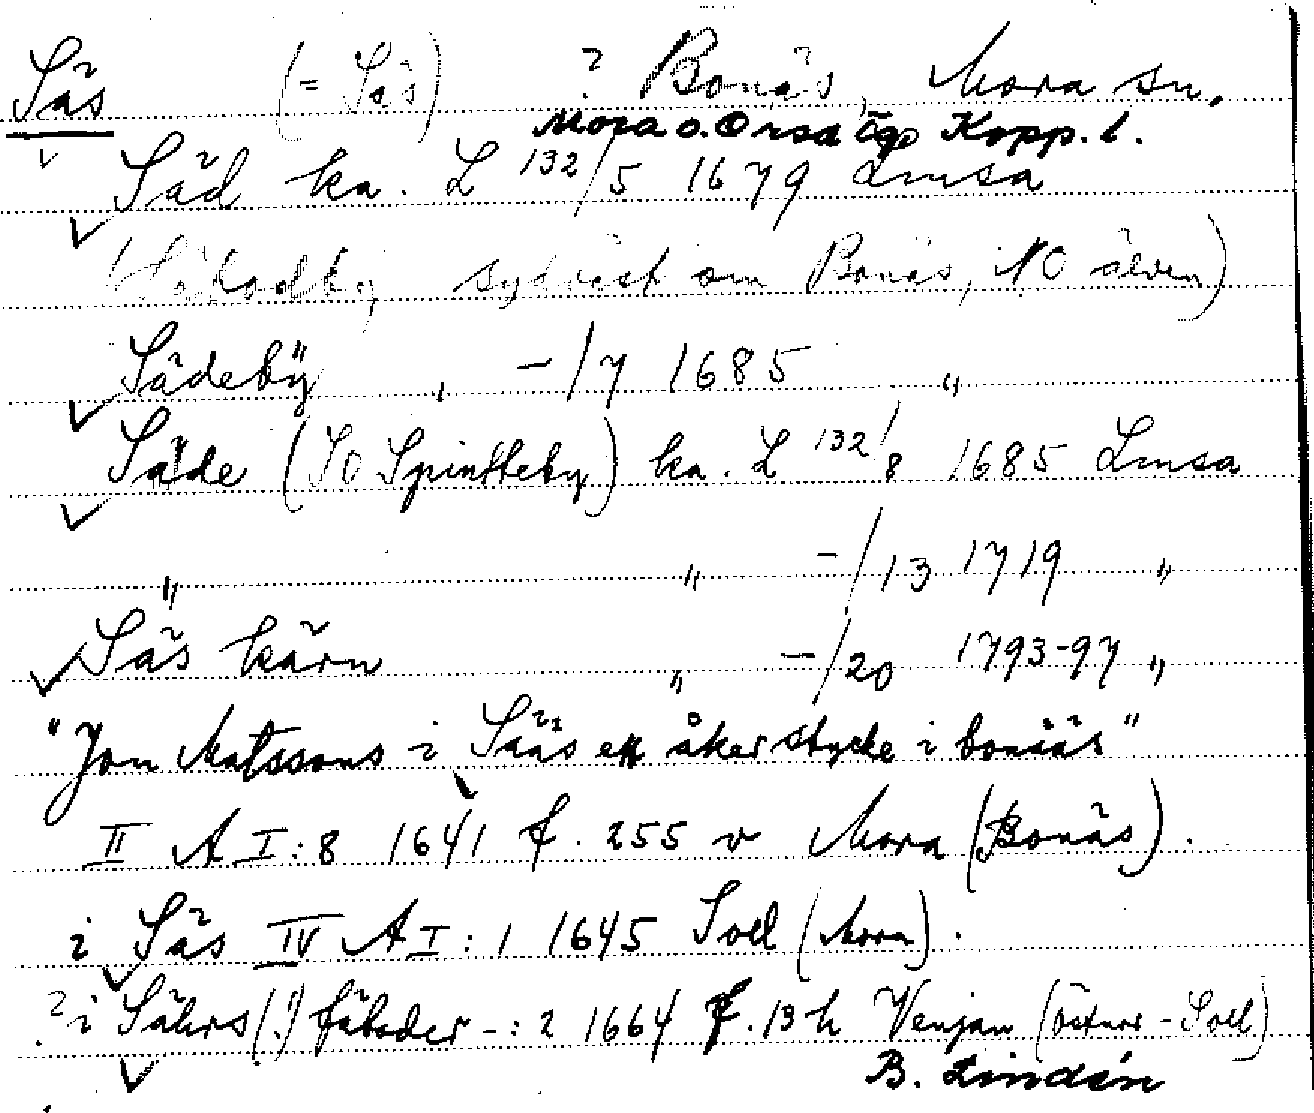 Säs (= Säs) ? Bonäs, Mora sn.
Mora o. Orsa tgs Kopp. l.
Säd ka. L 132/5 1679 Lmsa
( sydväst om Bonäs, NO älven)
Sädebÿ " -/7 1685 "
Säde (SO Spintteby) ka. L 132/8 1685 Lmsa
" " -/13 1719 "
Säs kärn " -/20 1793-97 "
"Jon Matssons i Sääs ett åkerstycke i bonääs"
II A I:8 1641 f. 255 v Mora (Bonäs).
i Säs IV A I:1 1645 Soll (Mora).
? i Sährs(!) fäboder -:2 1664 f. 13 h Venjan (Östnor - Soll)
B. Lindén